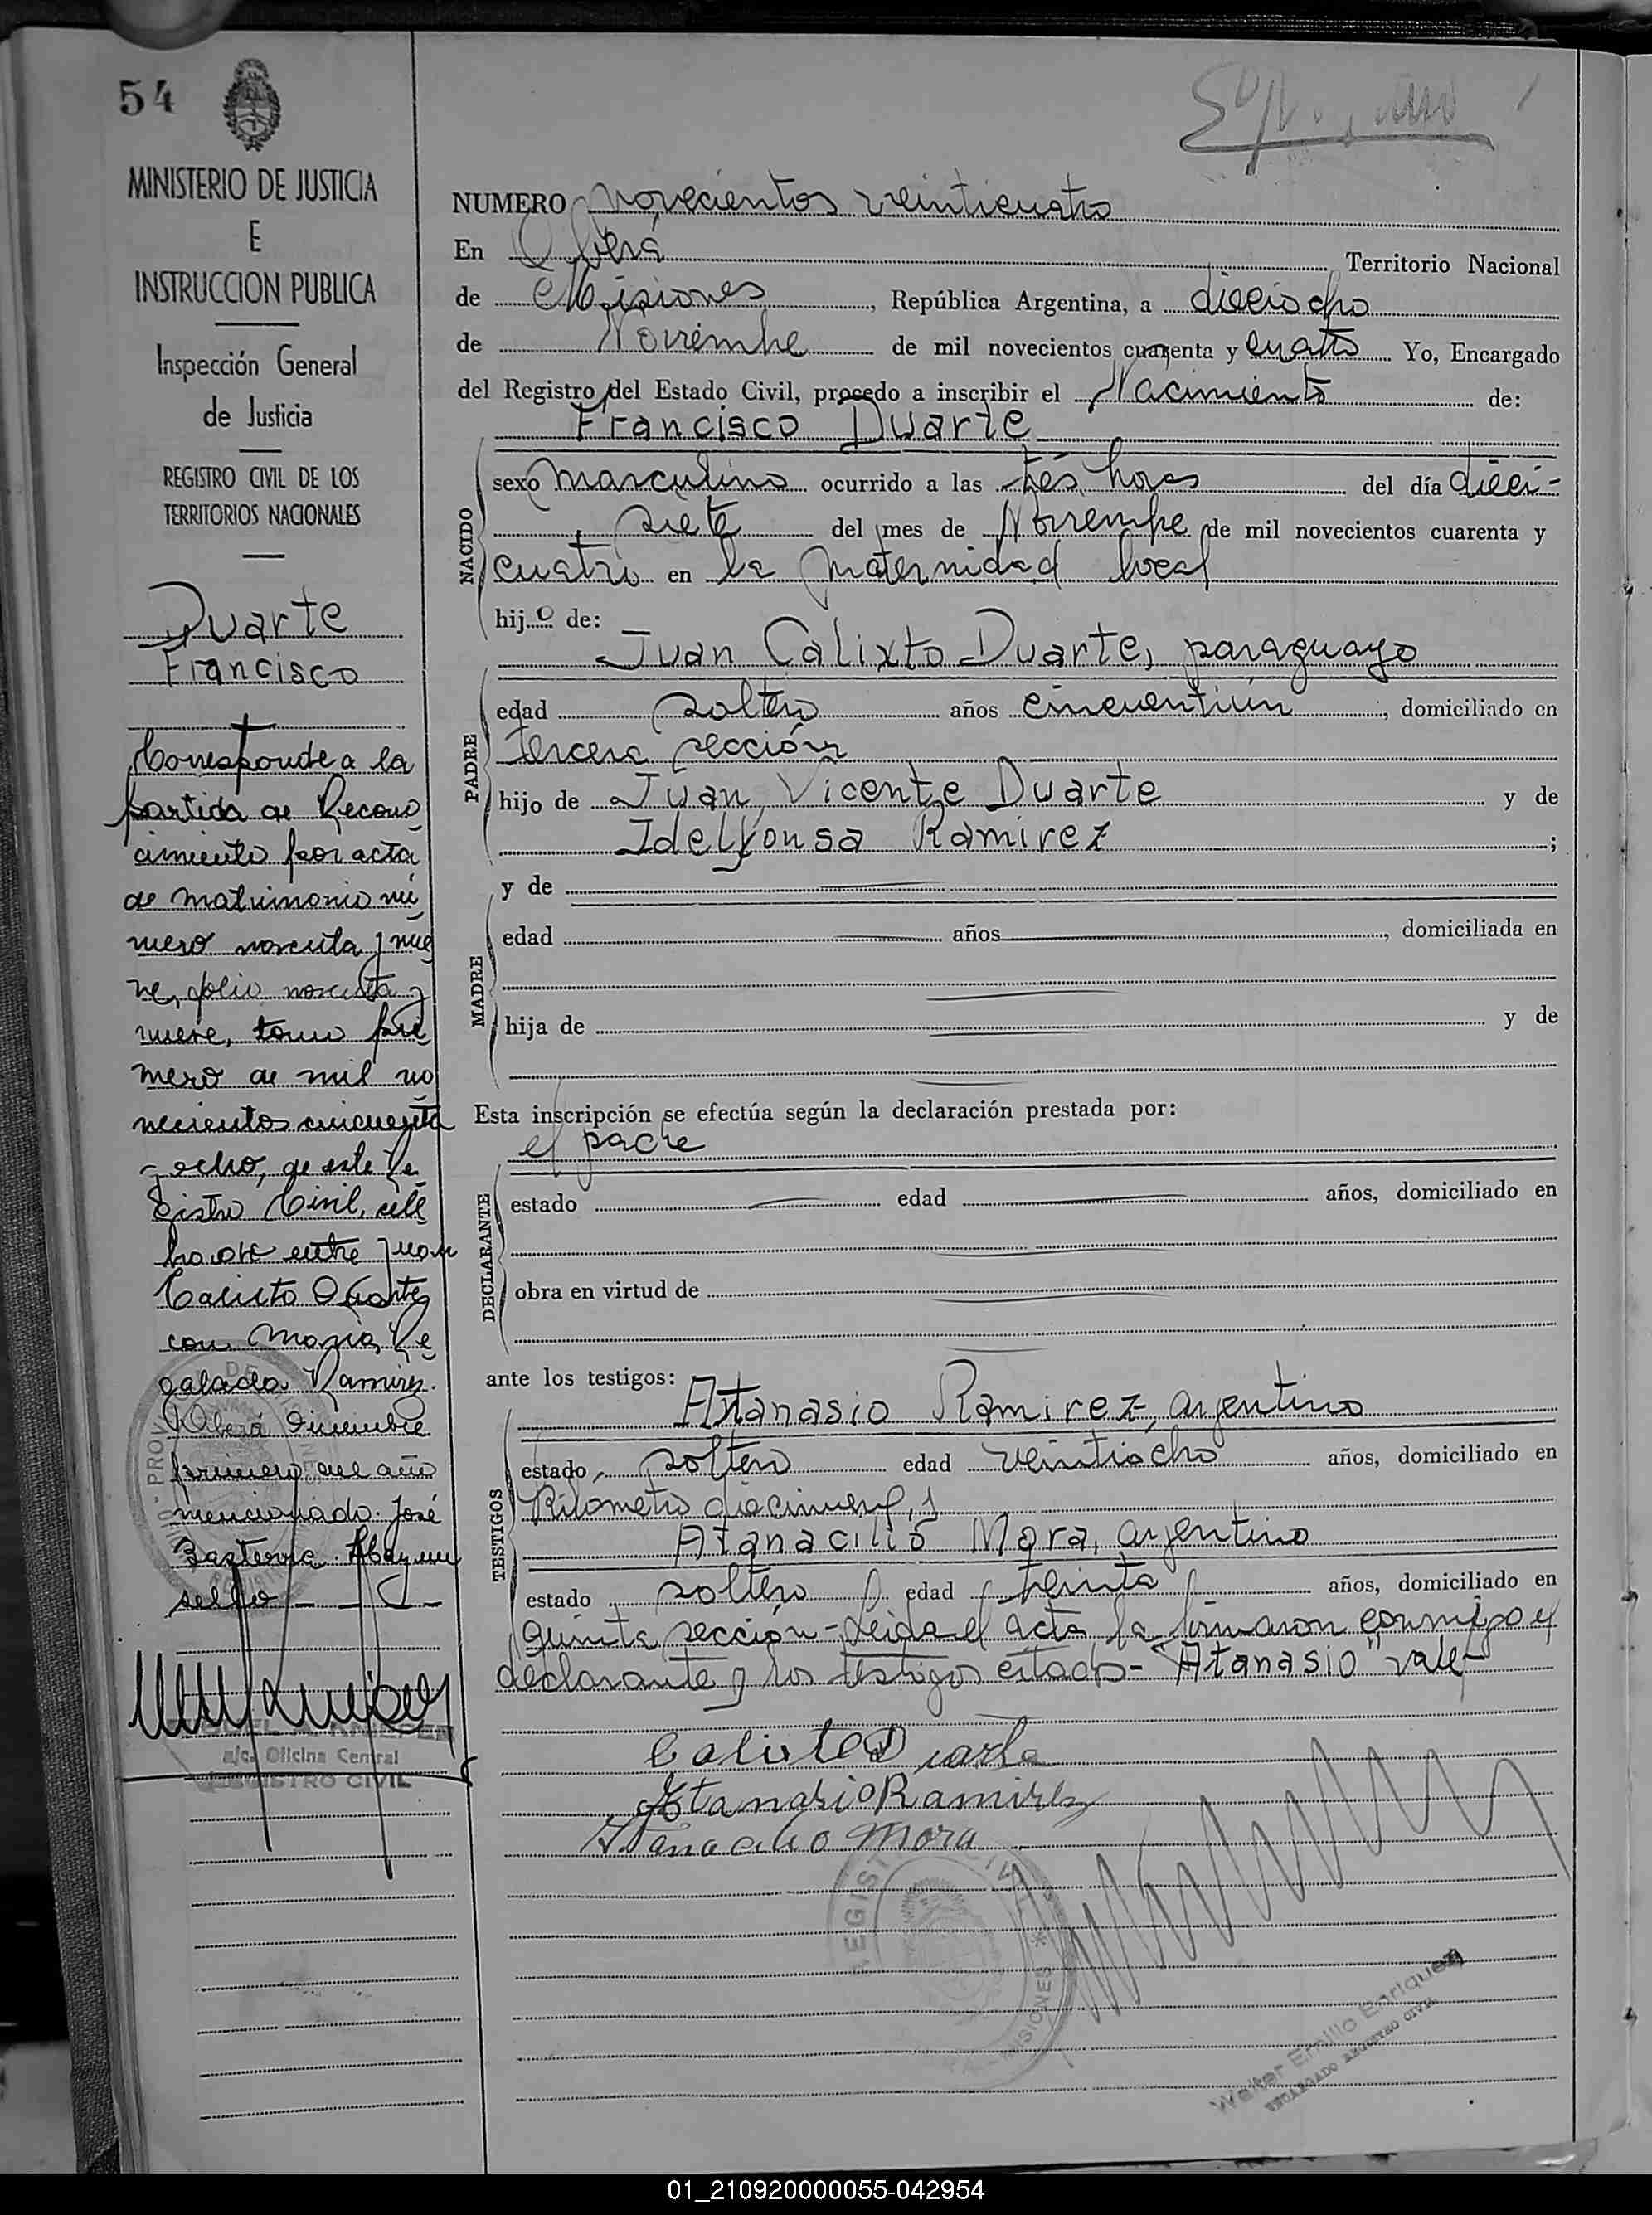 54
MINISTERIO DE JUSTICIA
E
INSTRUCCION PUBLICA
Inspección General
de Justicia
REGISTRO CIVIL DE LOS
TERRITORIOS NACIONALES
Duarte
Francisco
Corresponde a la
partida de Recono
cimiento por acta
de matrimonio nú
mero noventa y nue
ve, folio noventa y
nueve, tomo pri
mero de mil no
vecientos cincuenta
y ocho, de este Re
gistro Civil, cele
brado entre Juan
Calixto Duarte
con Maria Re
galada Ramirez.
Oberá Diciembre
primero del año
mencionado. José
Bazterra. Hay un
sello
a/c. Oficina Central
REGISTRO CIVIL
NUMERO novecientos veinticuatro
En Oberá Territorio Nacional
de Misiones, República Argentina, a dieciocho
de Noviembre de mil novecientos cuarenta y cuatro Yo, Encargado
del Registro del Estado Civil, procedo a inscribir el Nacimiento de:
Francisco Duarte
NACIDO
sexo masculino ocurrido a las trés horas del día dieci-
siete del mes de Noviembre de mil novecientos cuarenta y
cuatro en la maternidad local
hijo de:
Juan Calixto Duarte, paraguayo
PADRE
edad soltero años cincuentiún, domiciliado en
tercera sección
hijo de Juan Vicente Duarte y de
Idelfonsa Ramirez ;
y de
MADRE
edad años, domiciliada en
hija de y de
Esta inscripción se efectúa según la declaración prestada por:
el padre
DECLARANTE
estado edad años, domiciliado en
obra en virtud de
ante los testigos:
Atanasio Ramirez, argentino
TESTIGOS
estado soltero edad veintiocho años, domiciliado en
Kilometro diecinueve, y
Atanacilio Mora, argentino
estado soltero edad treinta años, domiciliado en
quinta sección - Leida el acta, la firmaron conmigo el
declarante y los testigos citados - "Atanasio" vale -
Calixto Duarte
Atanasio Ramirez
Atanacilio Mora
MISIONES
Walter Emilio Enriquez
ENCARGADO REGISTRO CIVIL
01_210920000055-042954